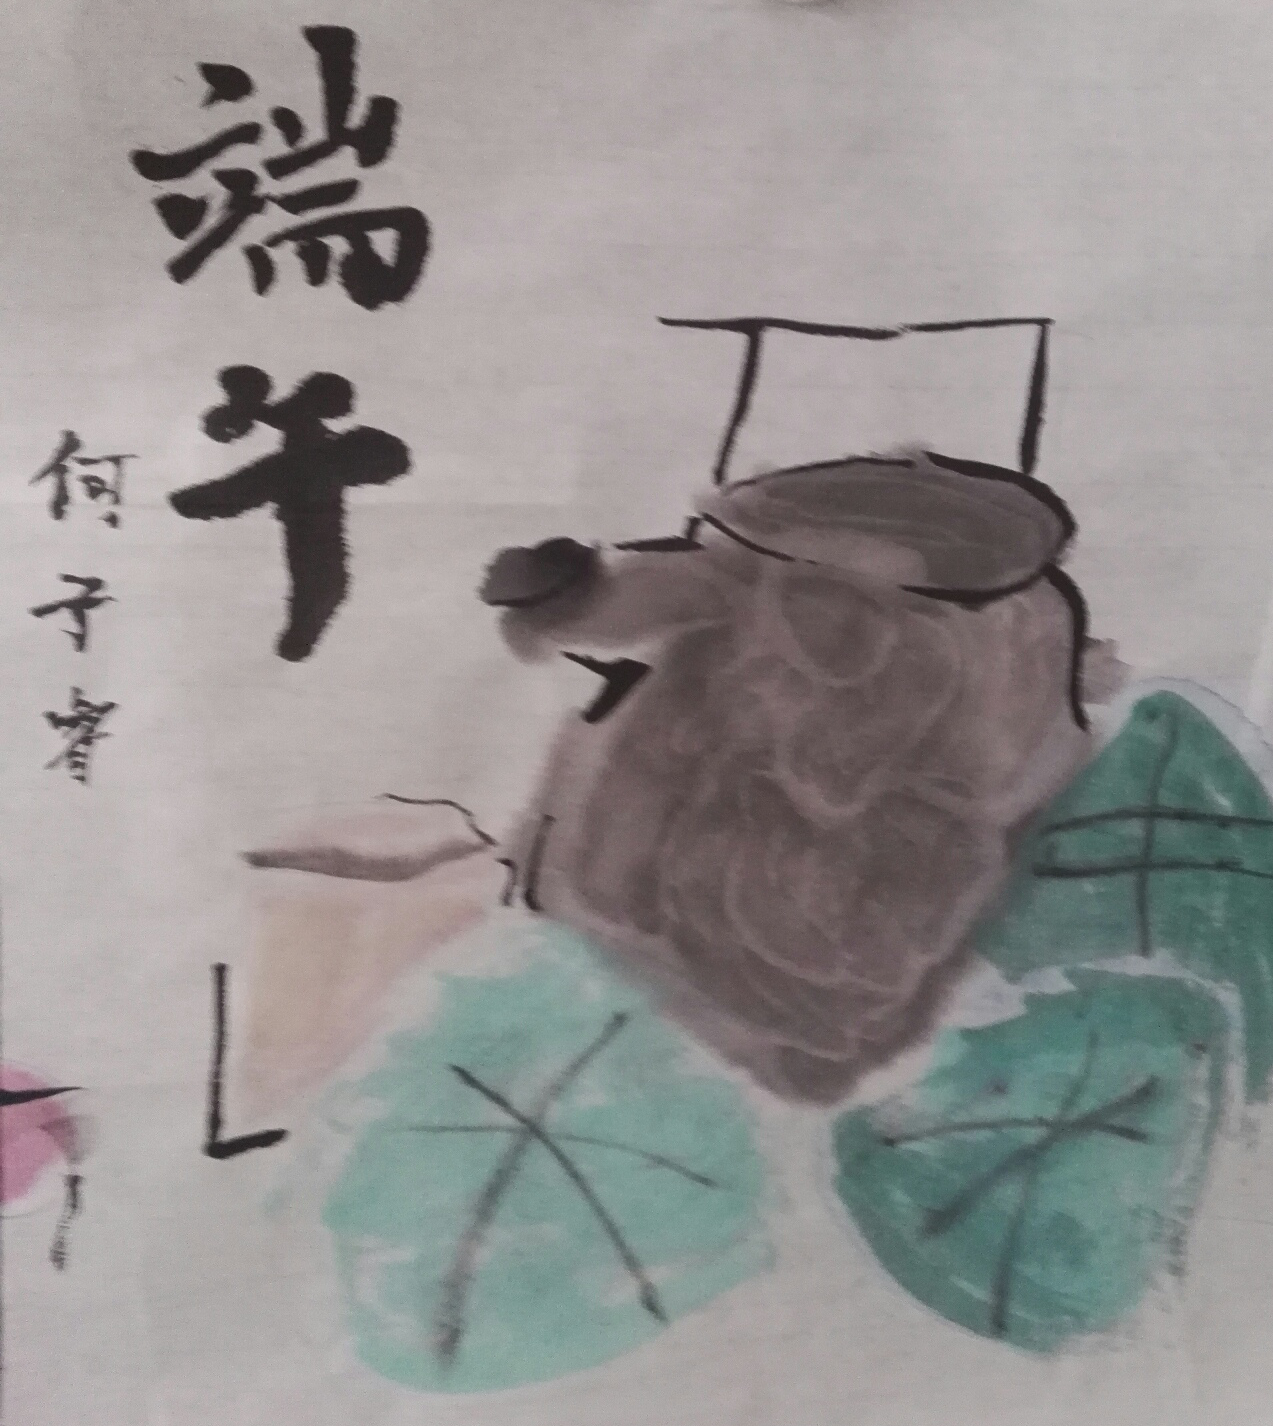 端午
何子睿